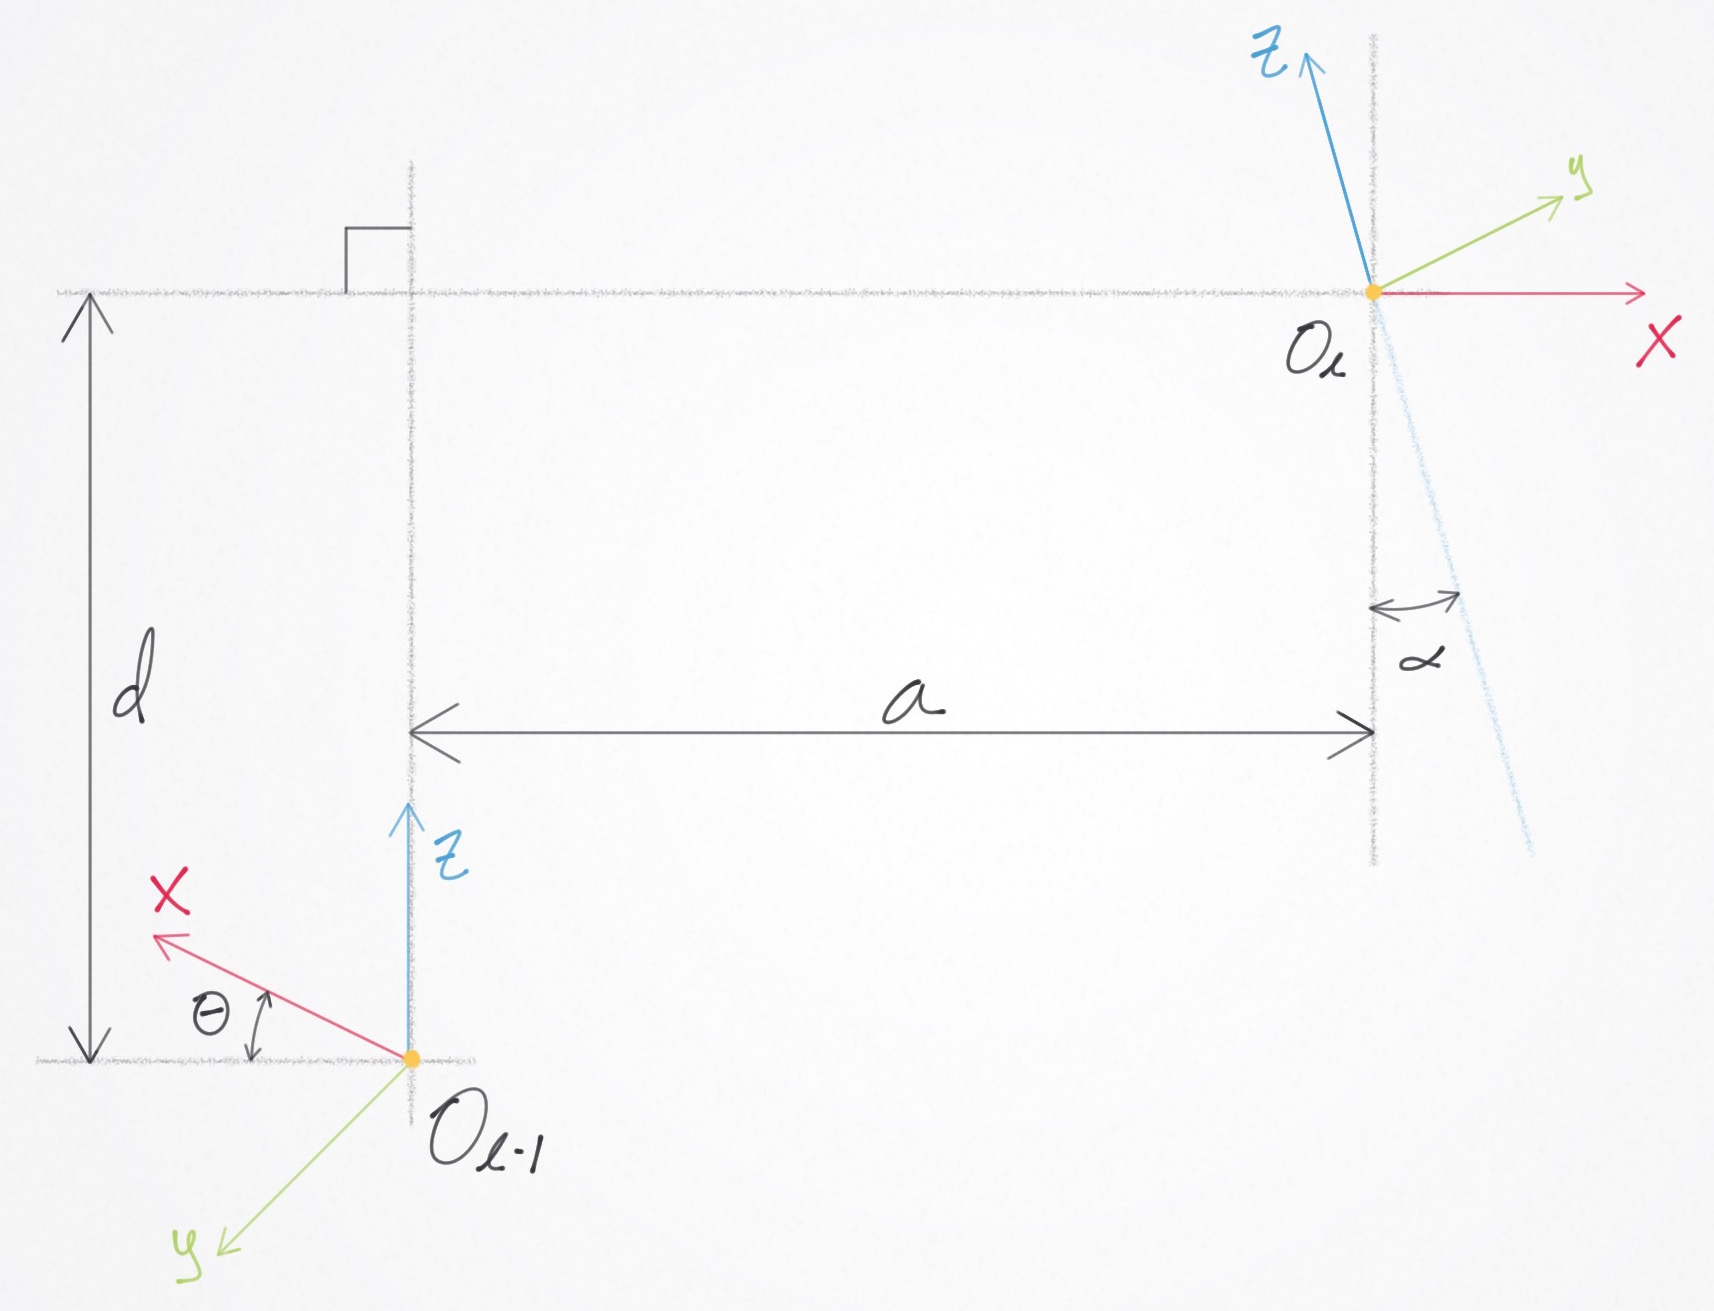 z
y
x
Oi
d
a
α
z
x
θ
Oi-1
y